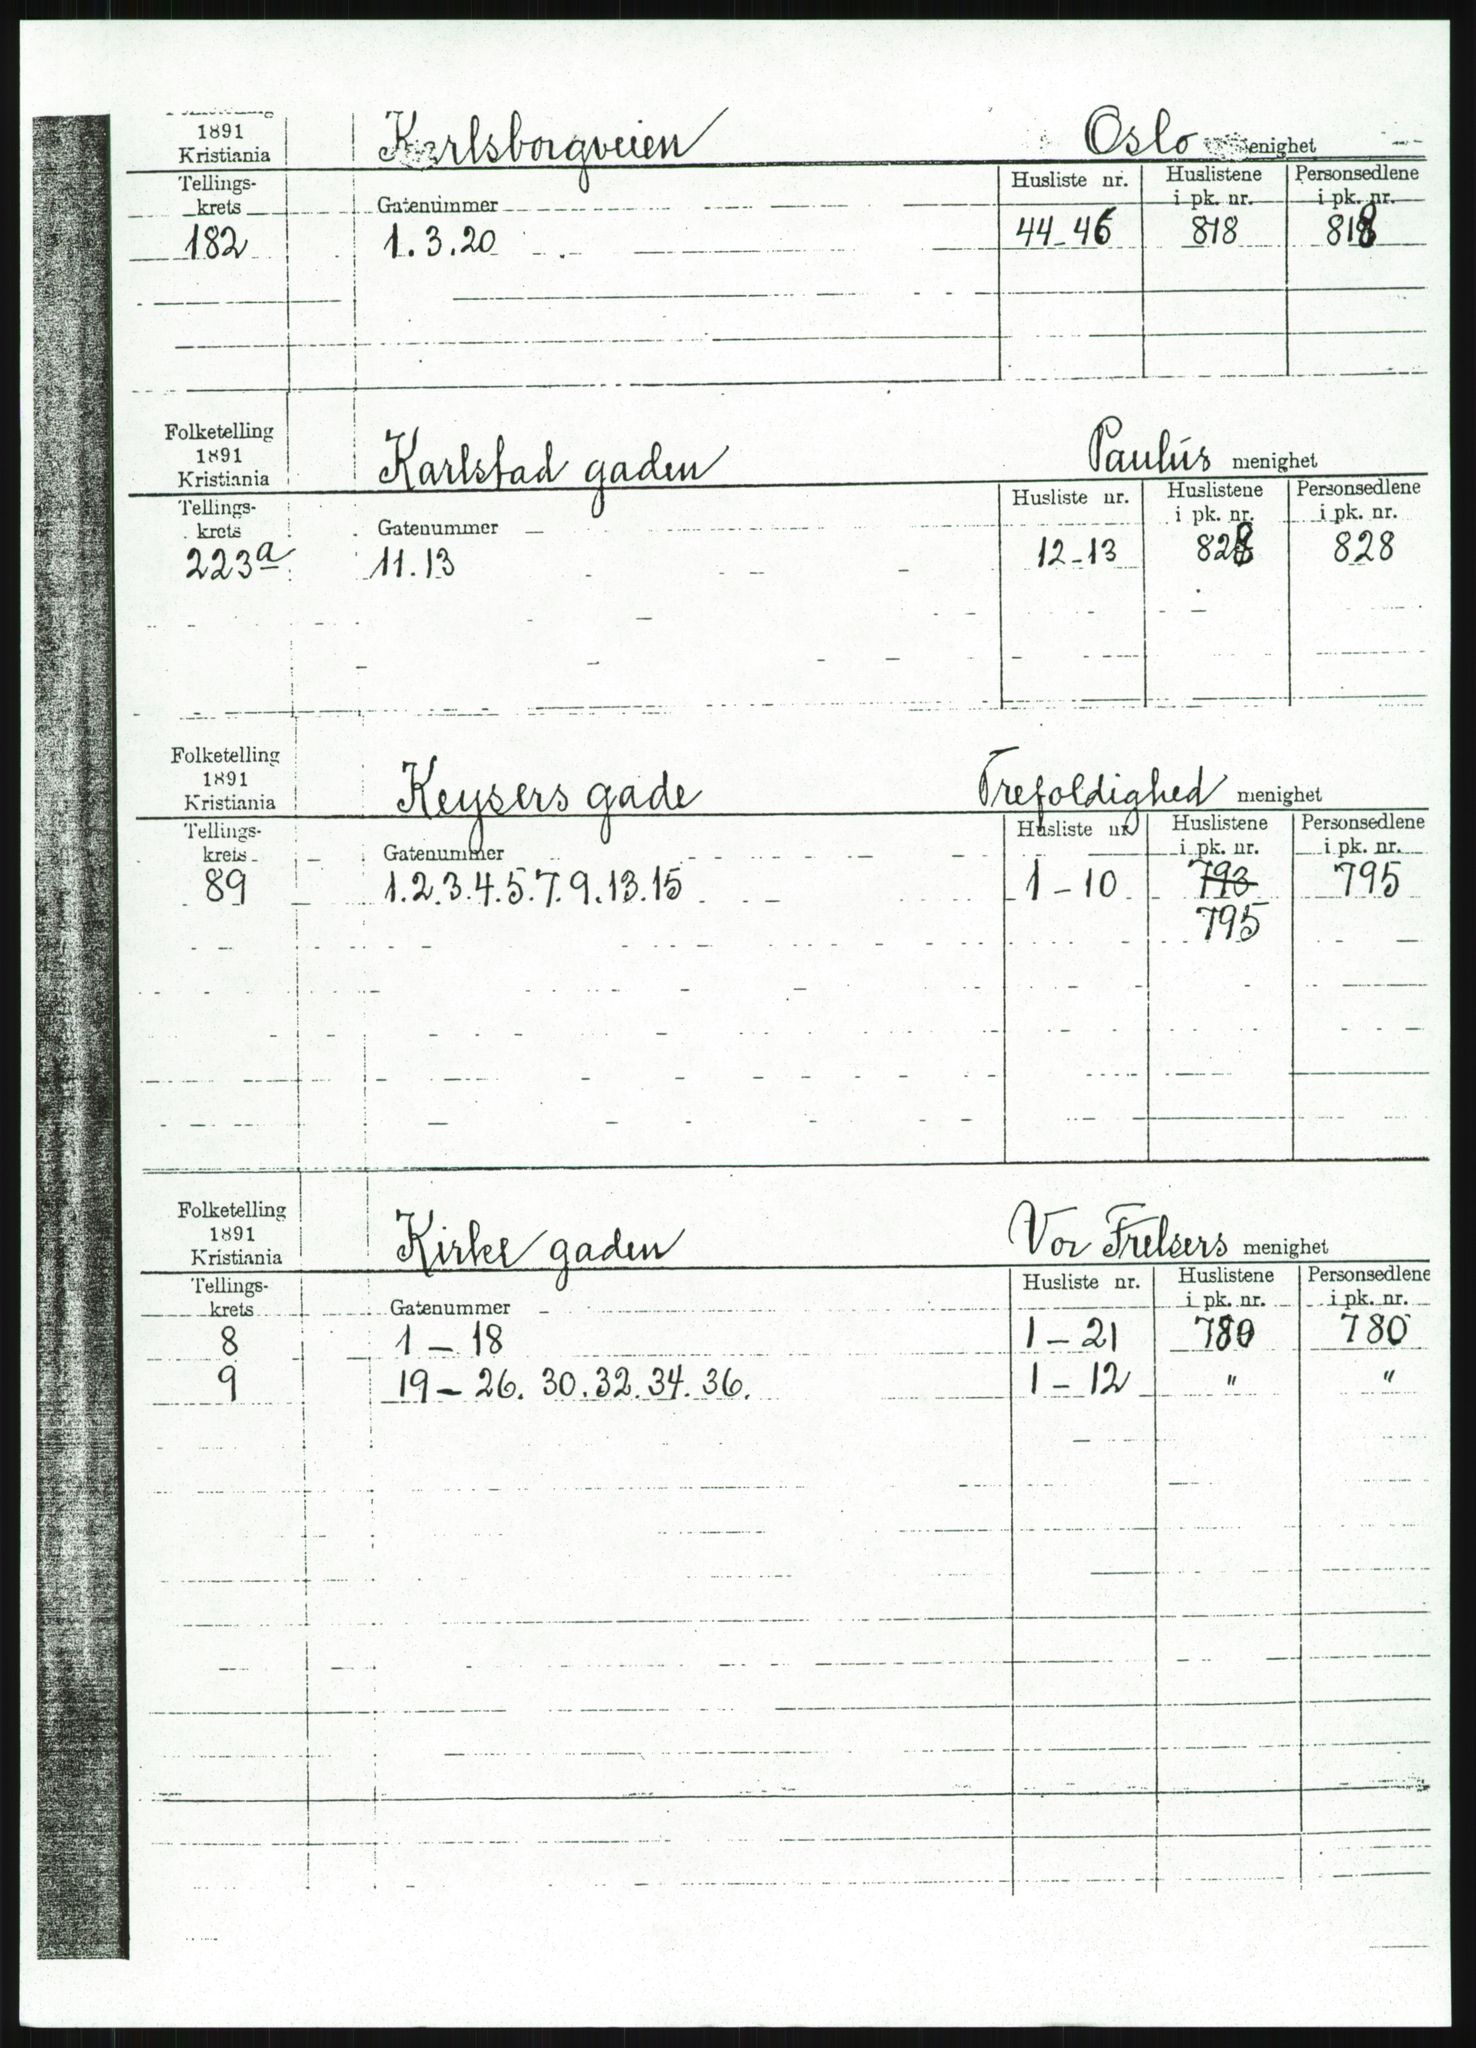 1891 Karlsborgveien Oslo menighet
Kristiania
Tellings- Husliste nr. Huslistene Personsedlene
krets Gatenummer i pk. nr. i pk. nr.
182 1. 3. 20 44-46 818 818
Folketelling
1891 Karlstad gaden Paulus menighet
Kristiania
Tellings- Husliste nr. Huslistene Personsedlene
krets Gatenummer i pk. nr. i pk. nr.
223a 11. 13 12-13 828 828
Folketelling
1891 Keysers gade Trefoldighed menighet
Kristiania
Tellings- Husliste nr. Huslistene Personsedlene
krets Gatenummer i pk. nr. i pk. nr.
89 1. 2. 3. 4. 5. 7. 9. 13. 15 1-10 793 795
795
Folketelling
1891 Kirke gaden Vor Frelsers menighet
Kristiania
Tellings- Husliste nr. Huslistene Personsedlene
krets Gatenummer i pk. nr. i pk. nr.
8 1-18 1-21 780 780
9 19-26. 30. 32. 34. 36. 1-12 " "